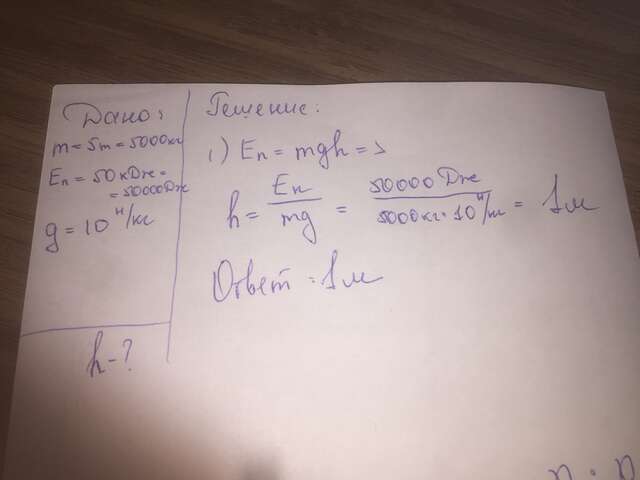 Дано:
m = 5т = 5000кг
Eп = 50кДж =
= 50000Дж
g = 10 Н/кг
h - ?
Решение:
1) Eп = mgh =>
h = Eп/mg = 50000 Дж/5000кг · 10 Н/кг = 1м
Ответ: 1м